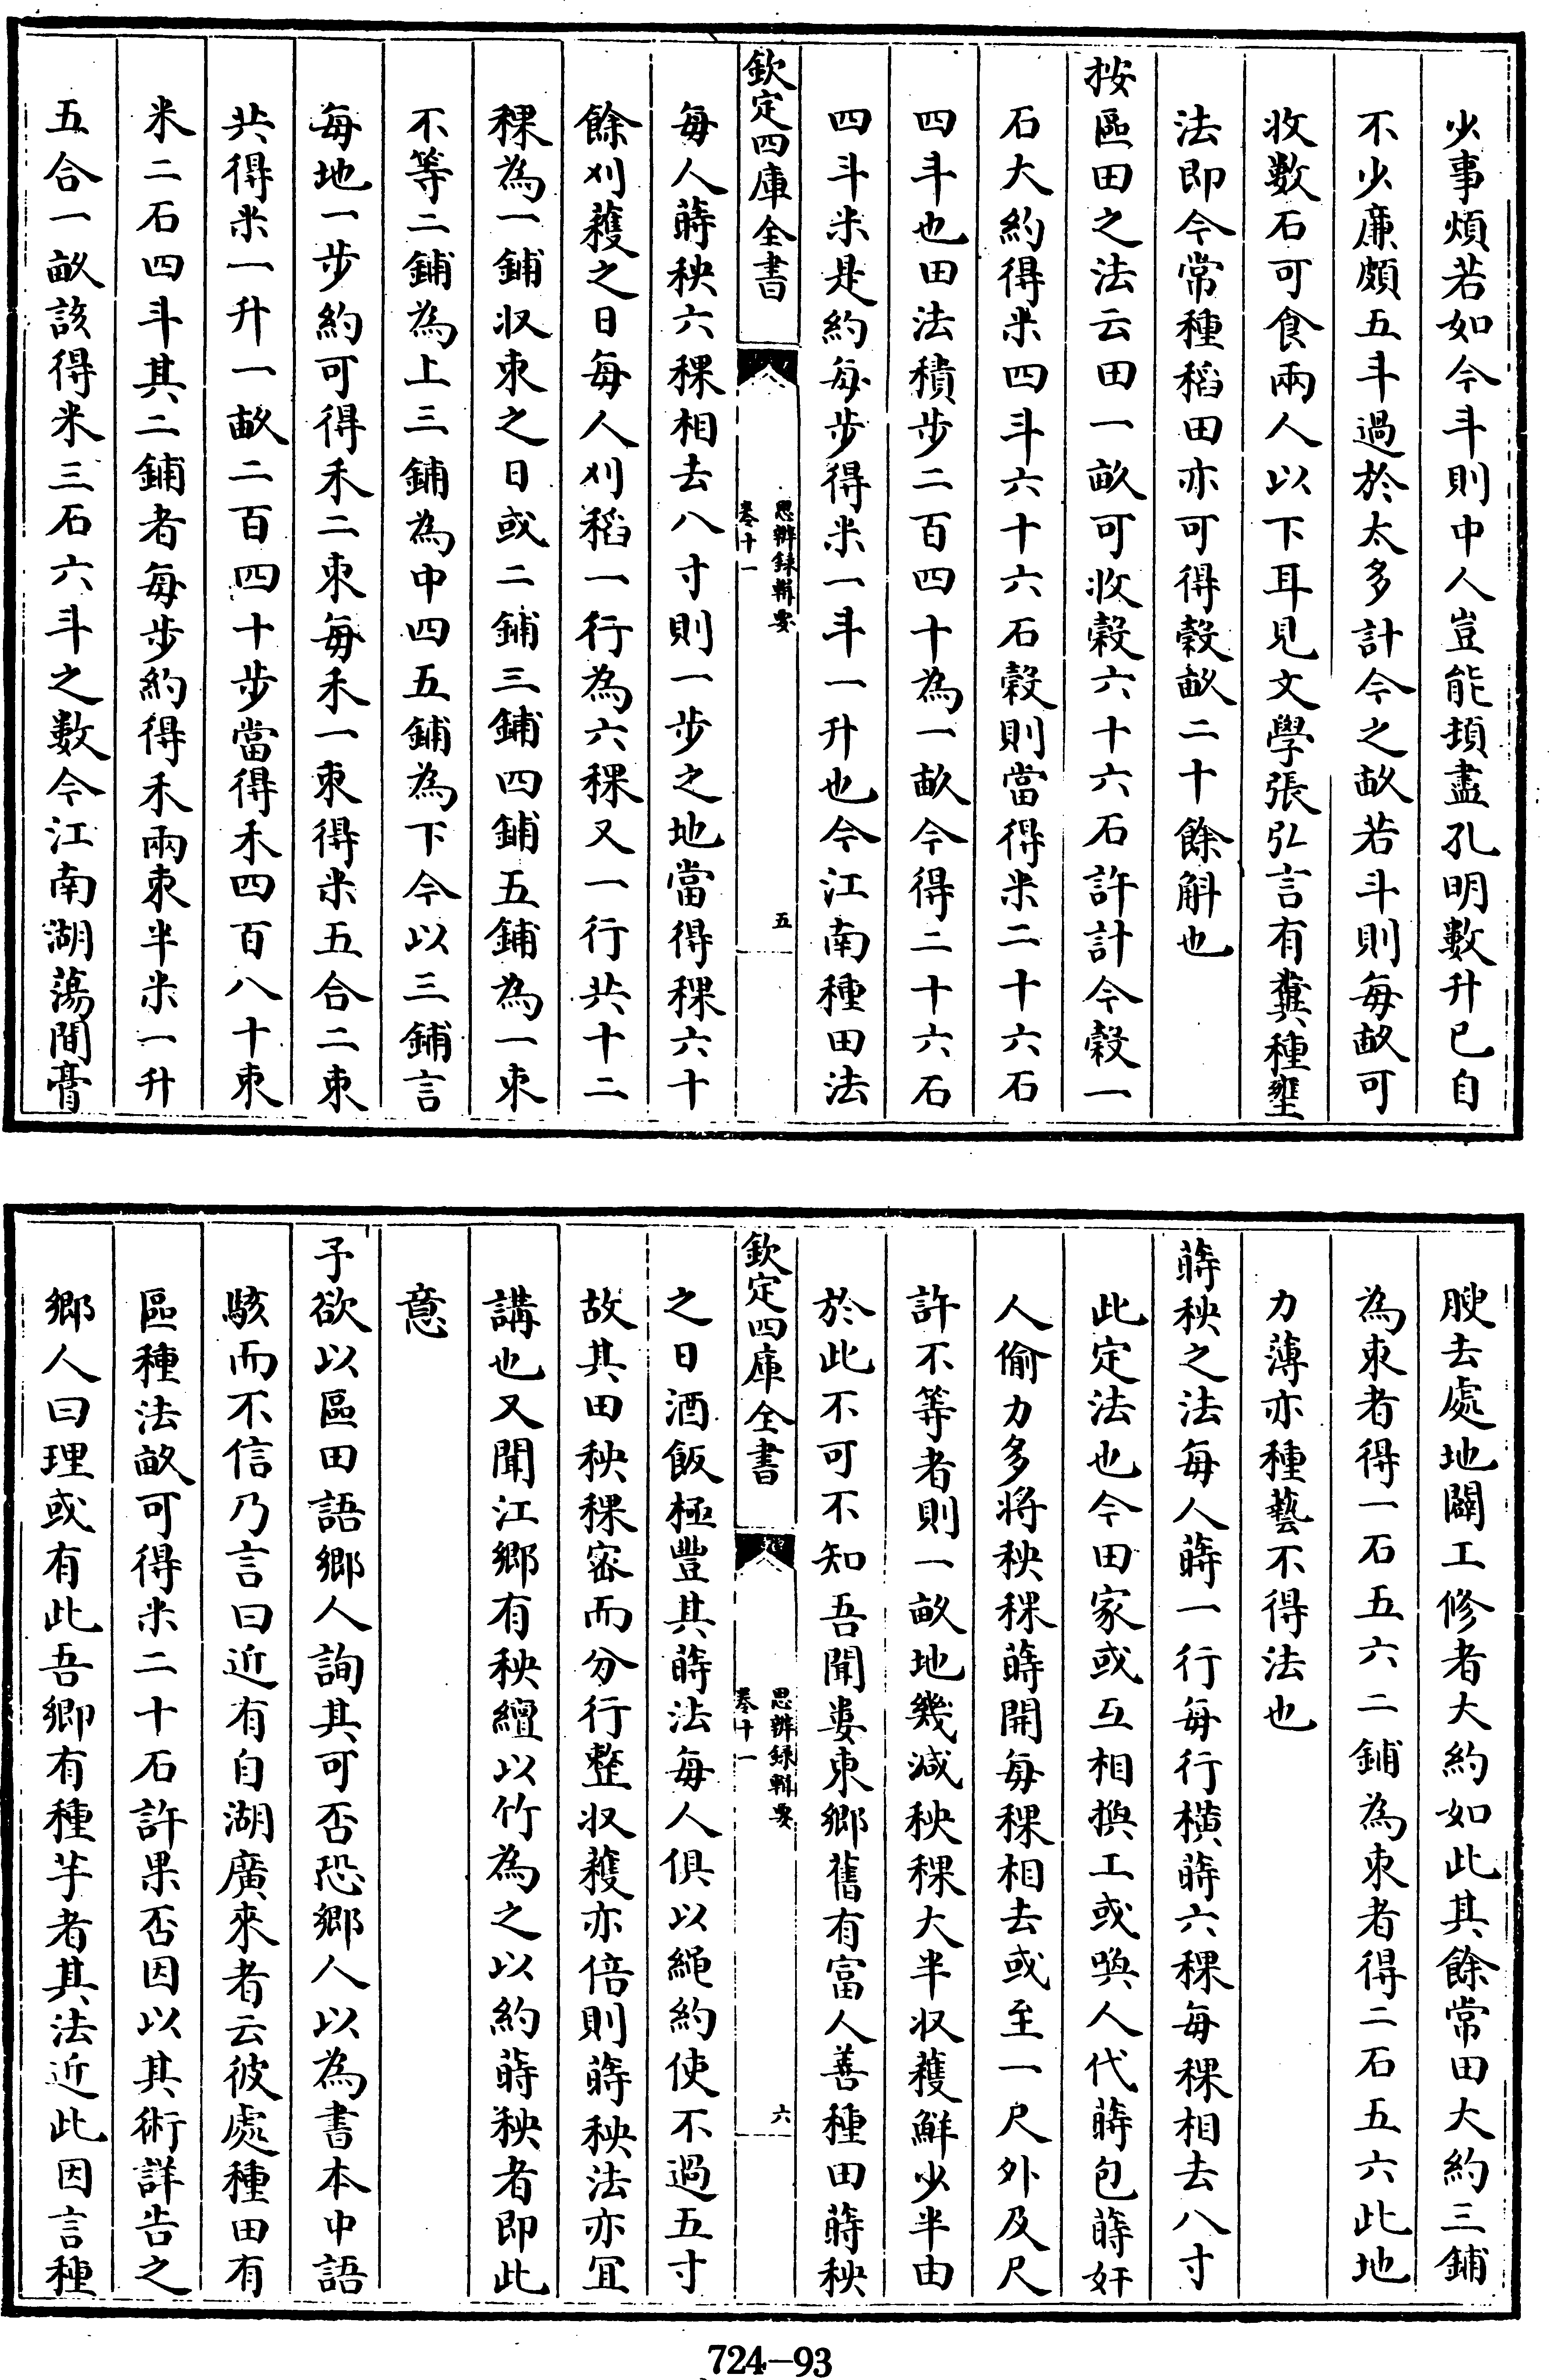 少事煩若如今斗則中人豈能頓盡孔明數升已自
不少廉頗五斗過於太多計今之畝若斗則每畝可
收數石可食兩人以下耳見文學張弘言有糞種壅
法即今常種稻田亦可得穀畝二十餘斛也
按區田之法云田一畝可收穀六十六石許計今穀一
石大約得米四斗六十六石穀則當得米二十六石
四斗也田法積步二百四十為一畝今得二十六石
四斗米是約每步得米一斗一升也今江南種田法
欽定四庫全書
思辨録輯要
卷十一
五
每人蒔秧六稞相去八寸則一步之地當得稞六十
餘刈穫之日每人刈稻一行為六稞又一行共十二
稞為一鋪收束之日或二鋪三鋪四鋪五鋪為一束
不等二鋪為上三鋪為中四五鋪為下今以三鋪言
每地一步約可得禾二束每禾一束得米五合二束
共得米一升一畝二百四十步當得禾四百八十束
米二石四斗其二鋪者每步約得禾兩束半米一升
五合一畝該得米三石六斗之數今江南湖蕩間膏
腴去處地闢工修者大約如此其餘常田大約三鋪
為束者得一石五六二鋪為束者得二石五六此地
力薄亦種藝不得法也
蒔秧之法每人蒔一行每行橫蒔六稞每稞相去八寸
此定法也今田家或互相換工或喚人代蒔包蒔奸
人偷力多將秧稞蒔開每稞相去或至一尺外及尺
許不等者則一畝地幾減秧稞大半收穫鮮少半由
於此不可不知吾聞婁東鄉舊有富人善種田蒔秧
欽定四庫全書
思辨録輯要
卷十一
六
之日酒飯極豐其蒔法每人俱以繩約使不過五寸
故其田秧稞密而分行整收穫亦倍則蒔秧法亦宜
講也又聞江鄉有秧繵以竹為之以約蒔秧者即此
意
予欲以區田語鄉人詢其可否恐鄉人以為書本中語
駭而不信乃言曰近有自湖廣來者云彼處種田有
區種法畝可得米二十石許果否因以其術詳告之
鄉人曰理或有此吾鄉有種芋者其法近此因言種
724-93